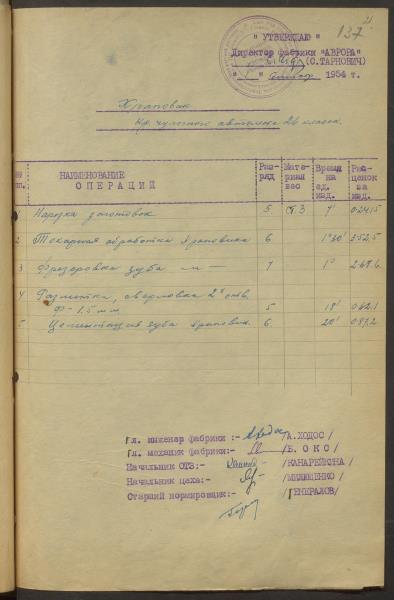 21
137
" УТВЕРЖДАЮ "
Директор фабрики "АВРОРА"
(С.ТАРНОВИЧ)
" 1954 г.
Храповик
Кр. чулочного автомата 26 класса.
НАИМЕНОВАНИЕ ОПЕРАЦИЙ
Раз-ряд
Мате-риал вес
Время на ед. изд.
Рас-ценок за изд.
Нарезка заготовок 5 Ст.3 7' 0-24,15
2 Токарная обработка храповика 6 1°30' 3-52,5
3 Фрезеровка зуба —"— 7 1° 2-68,6
4 Разметка, сверловка 2х отв.
Ф-1,5 мм 5 18' 0-62,1
5 Цементация зуба храповик. 6 20' 0-87,2
Гл. инженер фабрики :- /А.ХОДОС/
Гл. механик фабрики:- /Б. ОКС/
Начальник ОТЗ:- /КАНАРЕЙКИНА/
Начальник цеха:- /МИЛИНЕНКО/
Старший нормировщик:- /ГЕНЕРАЛОВ/